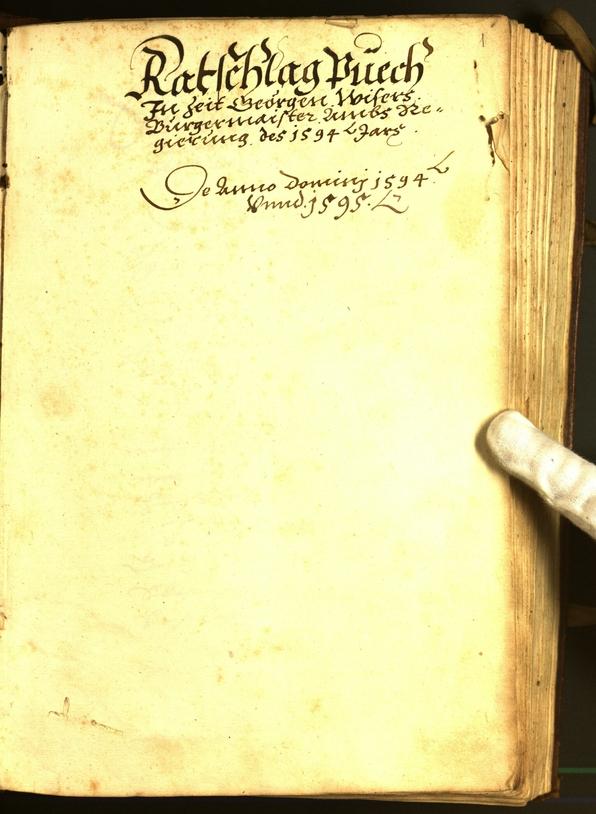 1
Ratschlag Puech
In Zeit Georgen Wisers
Burgermaister Ambs Re=
gierung des 1594 Jars.
De Anno Dominj 1594
Vnnd 1595.